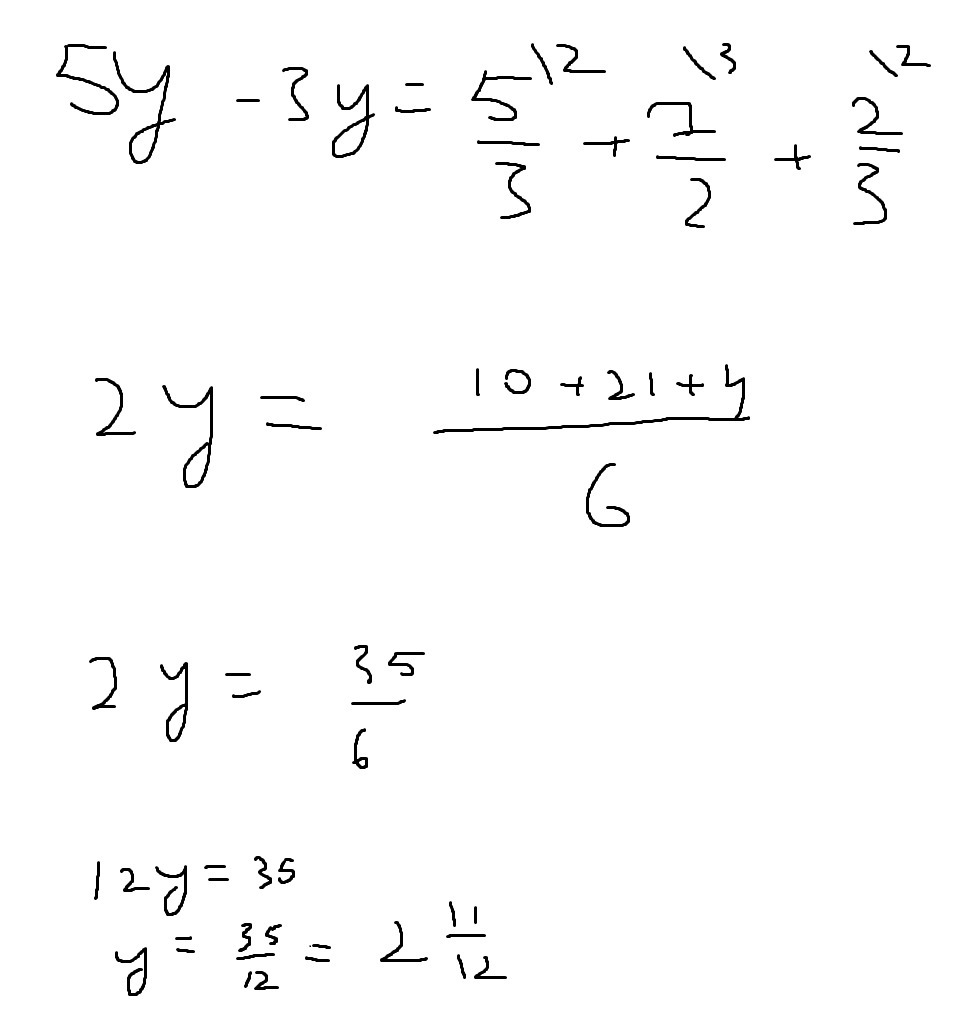 5y - 3y = 5/3 \2 + 7/2 \3 + 2/3 \2
2y = (10 + 21 + 4)/6
2y = 35/6
12y = 35
y = 35/12 = 2 11/12